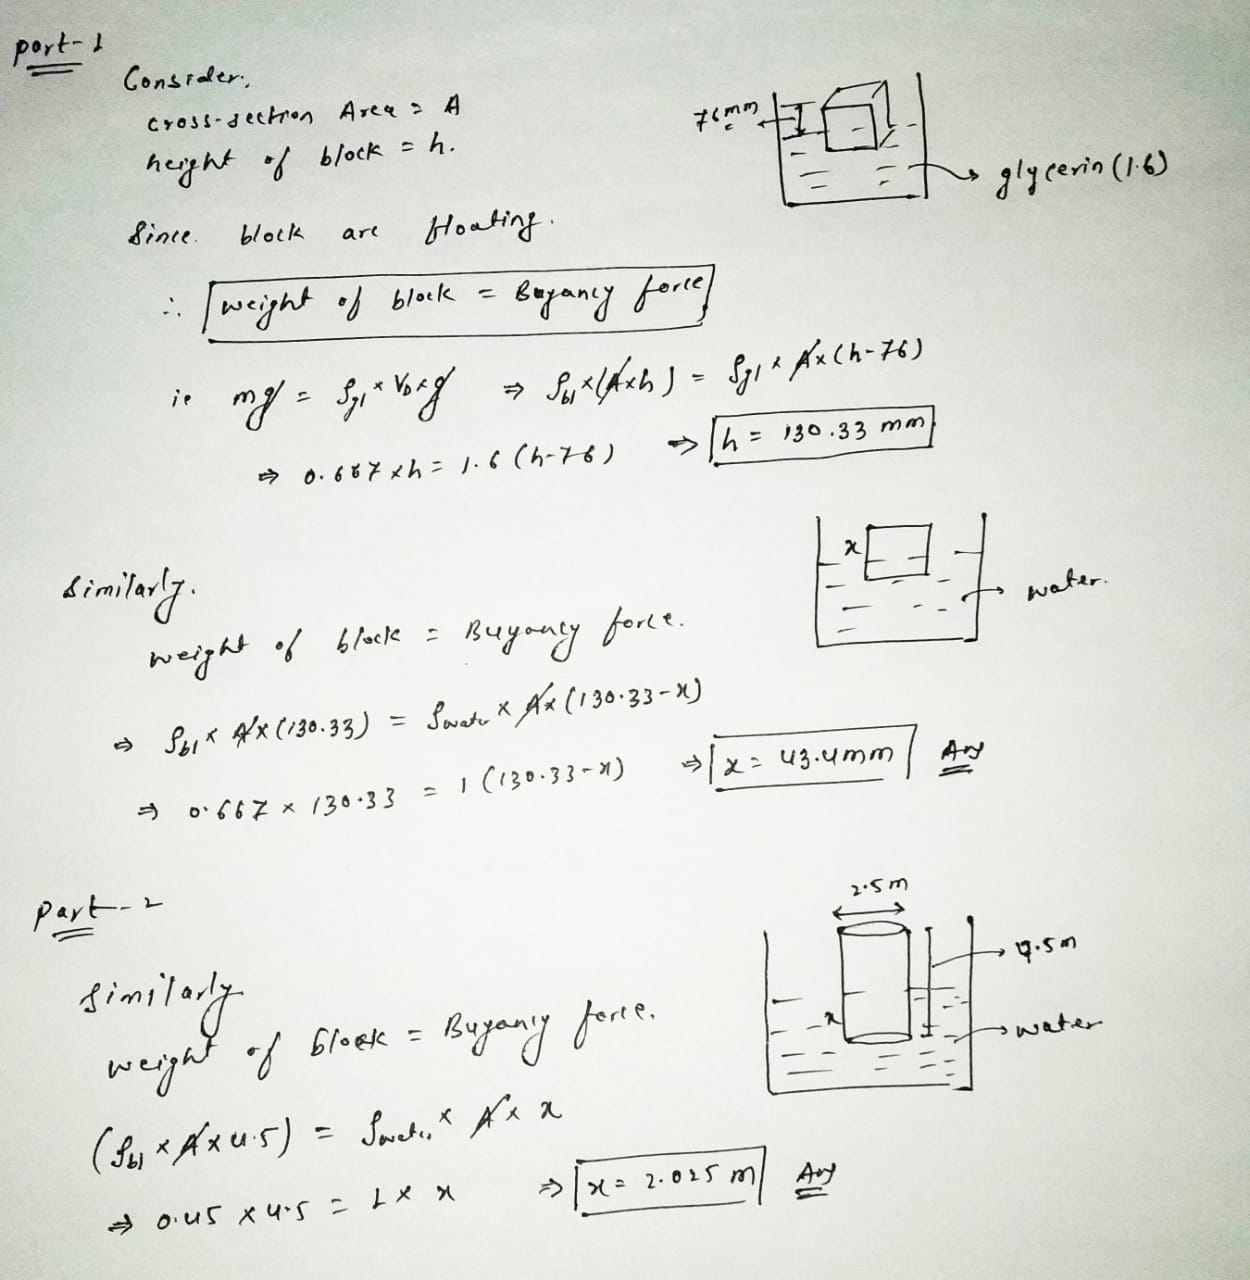 part-1
Consider,
cross-section Area = A
height of block = h.
76mm
glycerin (1.6)
Since block are floating.
∴ weight of block = Buyancy force
ie mg = ρgl × VD × g ⇒ ρbl × (A×h) = ρgl × A×(h-76)
⇒ 0.667 × h = 1.6 (h-76) ⇒ h = 130.33 mm
x
water.
Similarly.
weight of block = Buyancy force.
⇒ ρbl × A × (130.33) = ρwater × A× (130.33-x)
⇒ 0.667 × 130.33 = 1 (130.33-x) ⇒ x = 43.4mm Ans
part-2
2.5m
4.5m
x
water
Similarly
weight of block = Buyancy force.
(ρbl × A × 4.5) = ρwater × A × x
⇒ 0.45 × 4.5 = 1 × x ⇒ x = 2.025 m Ans